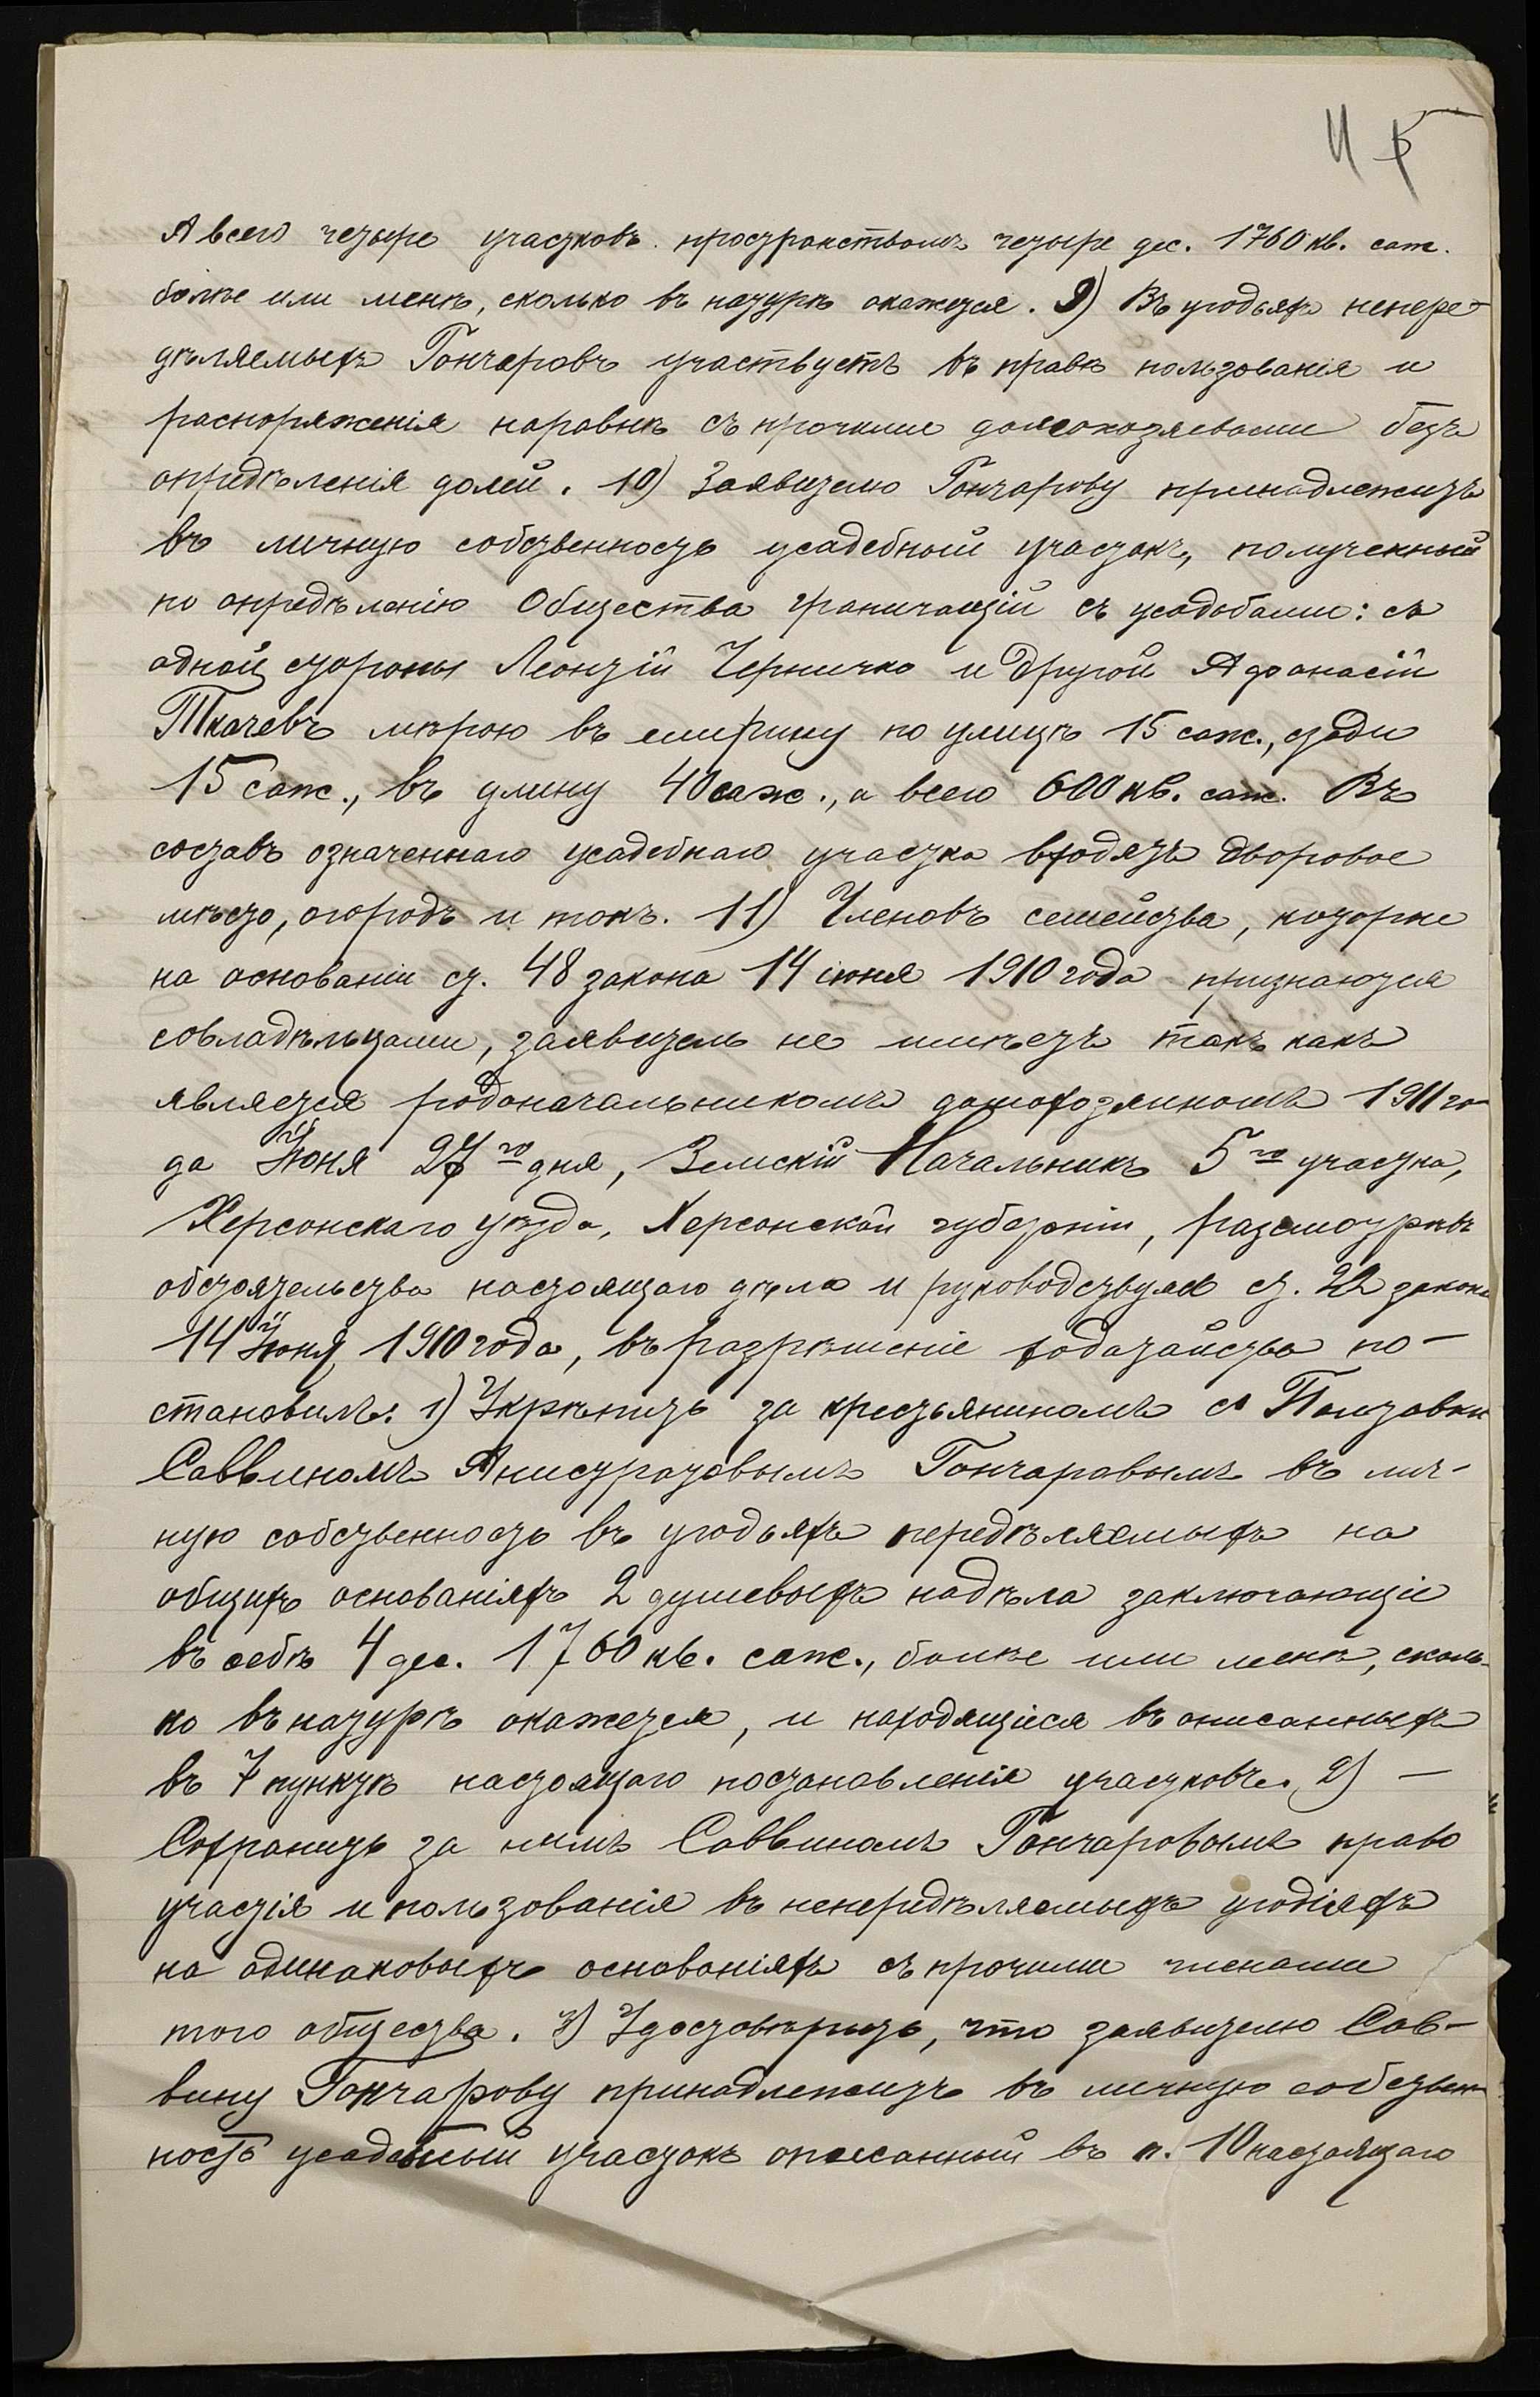 4
А всего четыре участковъ пространствомъ четыре дес. 1760 кв. саж.
болѣе или менѣ, сколько въ натурѣ окажется. 9) Въ угодьяхъ непере-
дѣляемыхъ Гончаровъ участвуетъ въ правѣ пользованія и
распоряженія наравнѣ съ прочими домохозяевами безъ
опредѣленія долей. 10) Заявителю Гончарову принадлежитъ
въ личную собственность усадебный участокъ, полученный
по опредѣленію Общества граничащій съ усадьбами: съ
одной стороны Леонтій Черничко и другой Афанасій
Ткачевъ мѣрою въ ширину по улицѣ 15 саж., сзади
15 саж., въ длину 40 саж., а всего 600 кв. саж. Въ
составъ означеннаго усадебнаго участка входятъ дворовое
мѣсто, огородъ и токъ. 11) Членовъ семейства, которые
на основаніи ст. 48 закона 14 іюня 1910 года признаются
совладѣльцами, заявитель не имѣетъ такъ какъ
является родоначальникомъ домохозяиномъ 1911 го-
да Іюня 27го дня, Земскій Начальникъ 5го участка,
Херсонскаго уѣзда, Херсонской губерніи, разсмотрѣвъ
обстоятельства настоящаго дѣла и руководствуясь ст. 22 закона
14 Іюня 1910 года, въ разрѣшеніе ходатайства по-
становилъ: 1) Укрѣпить за крестьяниномъ с.
Саввиномъ Анистратовымъ Гончаровымъ въ лич-
ную собственность въ угодьяхъ передѣляемыхъ на
общихъ основаніяхъ 2 душевыхъ надѣла заключающіе
въ себѣ 4 дес. 1760 кв. саж., болѣе или менѣ, сколь-
ко въ натурѣ окажется, и находящіеся въ описанныхъ
въ 7 пунктѣ настоящаго постановленія участковъ. 2) —
Сохранить за нимъ Саввиномъ Гончаровымъ право
участія и пользованія въ непередѣляемыхъ угодіяхъ
на одинаковыхъ основаніяхъ съ прочими членами
того общества. 3) Удостовѣрить, что заявителю Сав-
вину Гончарову принадлежитъ въ личную собствен
ность усадебный участокъ описанный въ п. 10 настоящаго